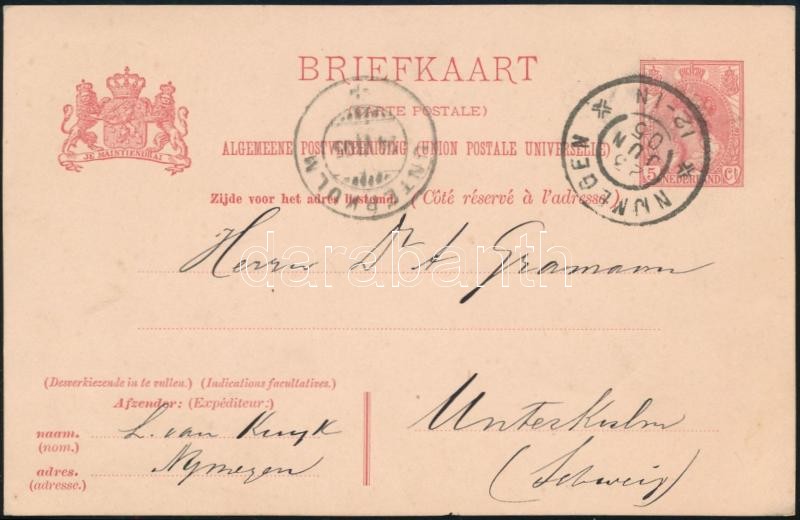 BRIEFKAART
(CARTE POSTALE)
ALGEMEENE POSTVEREENIGING (UNION POSTALE UNIVERSELLE)
JE MAINTIENDRAI
Zijde voor het adres bestemd. (Côté réservé à l'adresse.)
UNTERKULM
NIJMEGEN
23 JUN 05
12-1N
5 Ct
NEDERLAND
Herrn Dr A. Gramann
darabanth
(Desverkiezende in te vullen.) (Indications facultatives.)
Afzender: (Expéditeur:)
naam. L. van Kuyk
(nom.)
adres. Nymegen
(adresse.)
Unterkulm
(Schweiz)